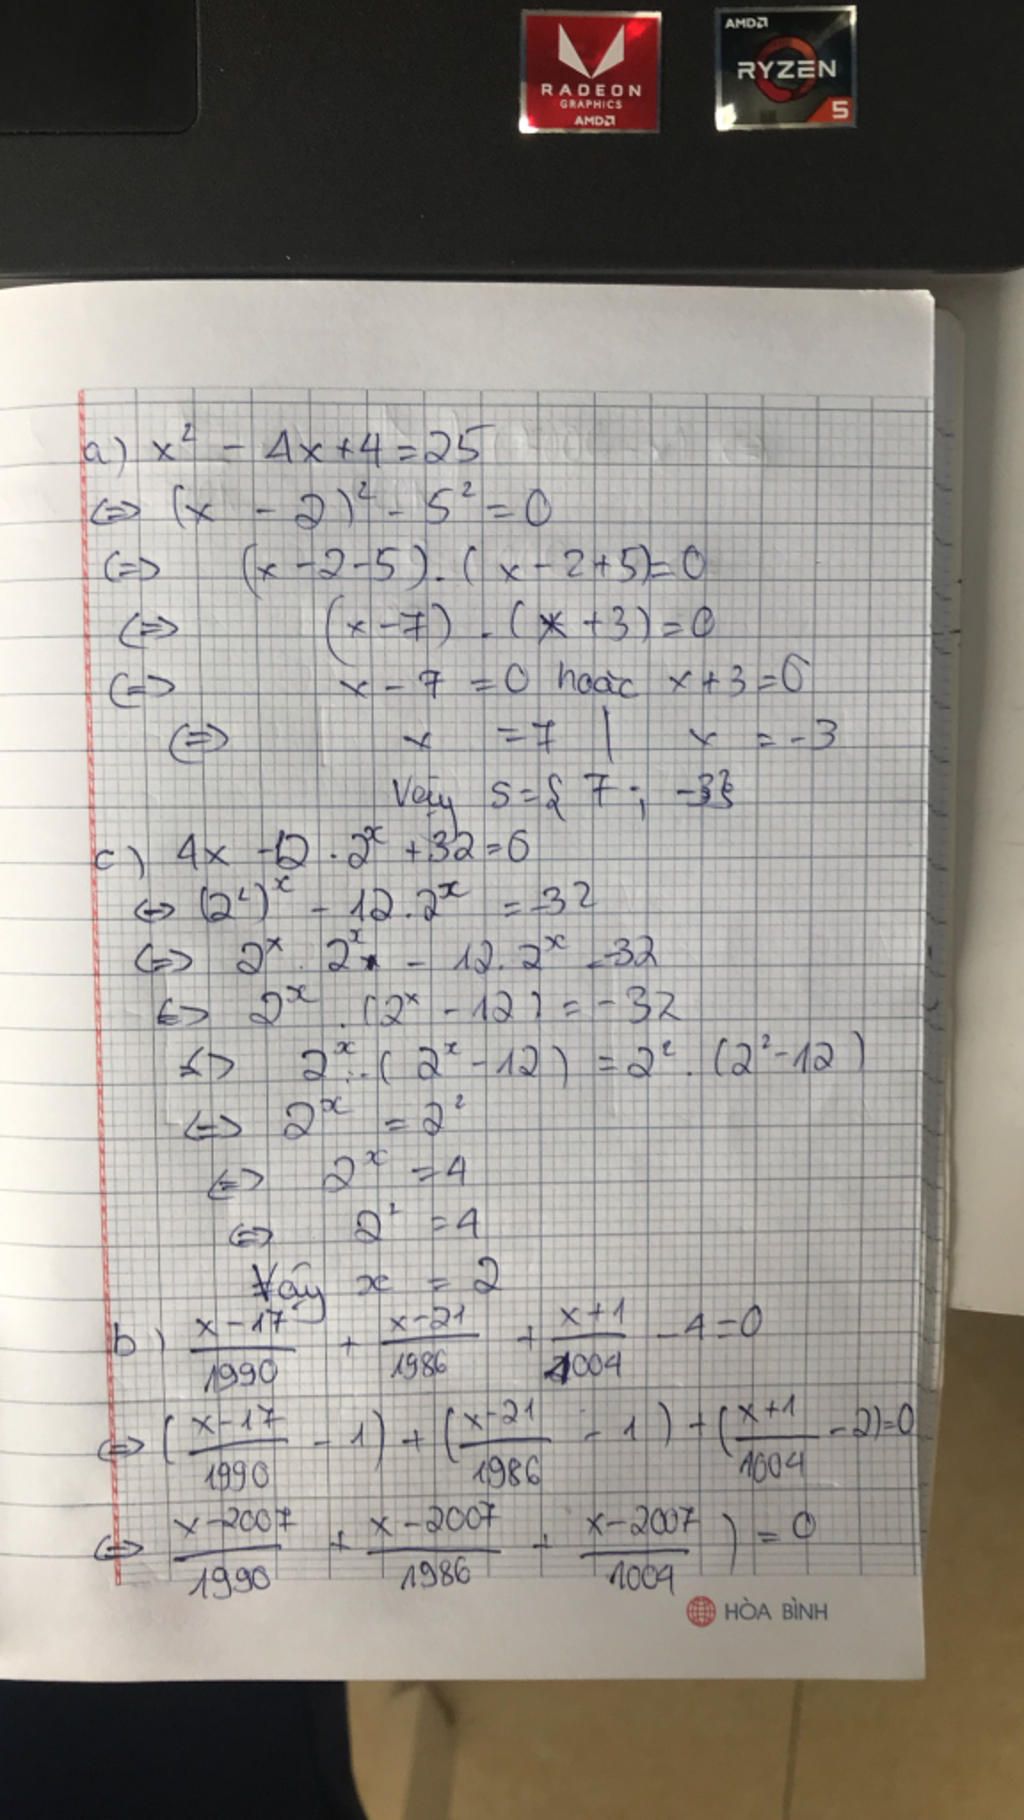 RADEON
GRAPHICS
AMD
AMD
RYZEN
5
a) x² - 4x + 4 = 25
<=> (x - 2)² - 5² = 0
<=> (x - 2 - 5) . (x - 2 + 5) = 0
<=> (x - 7) . (x + 3) = 0
<=> x - 7 = 0 hoặc x + 3 = 0
<=> x = 7 | x = -3
Vậy S = { 7 ; -3}
c) 4x - 12 . 2ˣ + 32 = 0
<=> (2²)ˣ - 12 . 2ˣ = -32
<=> 2ˣ . 2ˣ - 12 . 2ˣ = -32
<=> 2ˣ . (2ˣ - 12) = -32
<=> 2ˣ . (2ˣ - 12) = 2² . (2² - 12)
<=> 2ˣ = 2²
<=> 2ˣ = 4
<=> 2² = 4
Vậy x = 2
b) (x-17)/1990 + (x-21)/1986 + (x+1)/1004 - 4 = 0
<=> ((x-17)/1990 - 1) + ((x-21)/1986 - 1) + ((x+1)/1004 - 2) = 0
<=> (x-2007)/1990 + (x-2007)/1986 + (x-2007)/1004 ) = 0
HÒA BÌNH